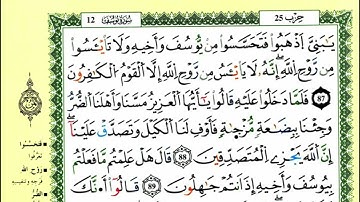 حزب 25
سورة يوسف 12
يَـٰبَنِىَّ ٱذْهَبُوا۟ فَتَحَسَّسُوا۟ مِن يُوسُفَ وَأَخِيهِ وَلَا تَا۟يْـَٔسُوا۟
مِن رَّوْحِ ٱللَّهِ إِنَّهُۥ لَا يَا۟يْـَٔسُ مِن رَّوْحِ ٱللَّهِ إِلَّا ٱلْقَوْمُ ٱلْكَـٰفِرُونَ
87 فَلَمَّا دَخَلُوا۟ عَلَيْهِ قَالُوا۟ يَـٰٓأَيُّهَا ٱلْعَزِيزُ مَسَّنَا وَأَهْلَنَا ٱلضُّرُّ
وَجِئْنَا بِبِضَـٰعَةٍ مُّزْجَىٰةٍ فَأَوْفِ لَنَا ٱلْكَيْلَ وَتَصَدَّقْ عَلَيْنَآ
إِنَّ ٱللَّهَ يَجْزِى ٱلْمُتَصَدِّقِينَ 88 قَالَ هَلْ عَلِمْتُم مَّا فَعَلْتُم
بِيُوسُفَ وَأَخِيهِ إِذْ أَنتُمْ جَـٰهِلُونَ 89 قَالُوٓا۟ أَءِنَّكَ
فتحسسوا
تعرفوا
روح الله
فرجه وتنفيسه
الضر